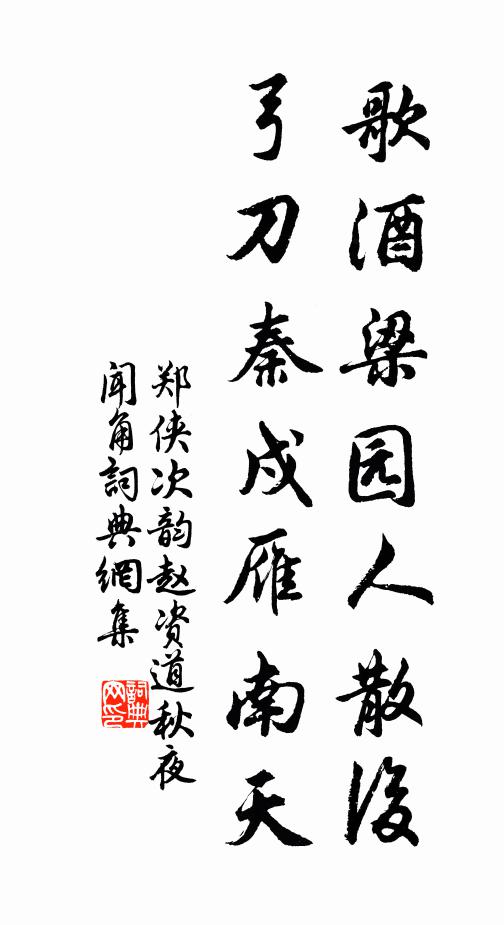 歌酒梁园人散後
弓刀秦戍雁南天
郑侠次韵赵资道秋夜
闻角詞典網集
詞典
网印